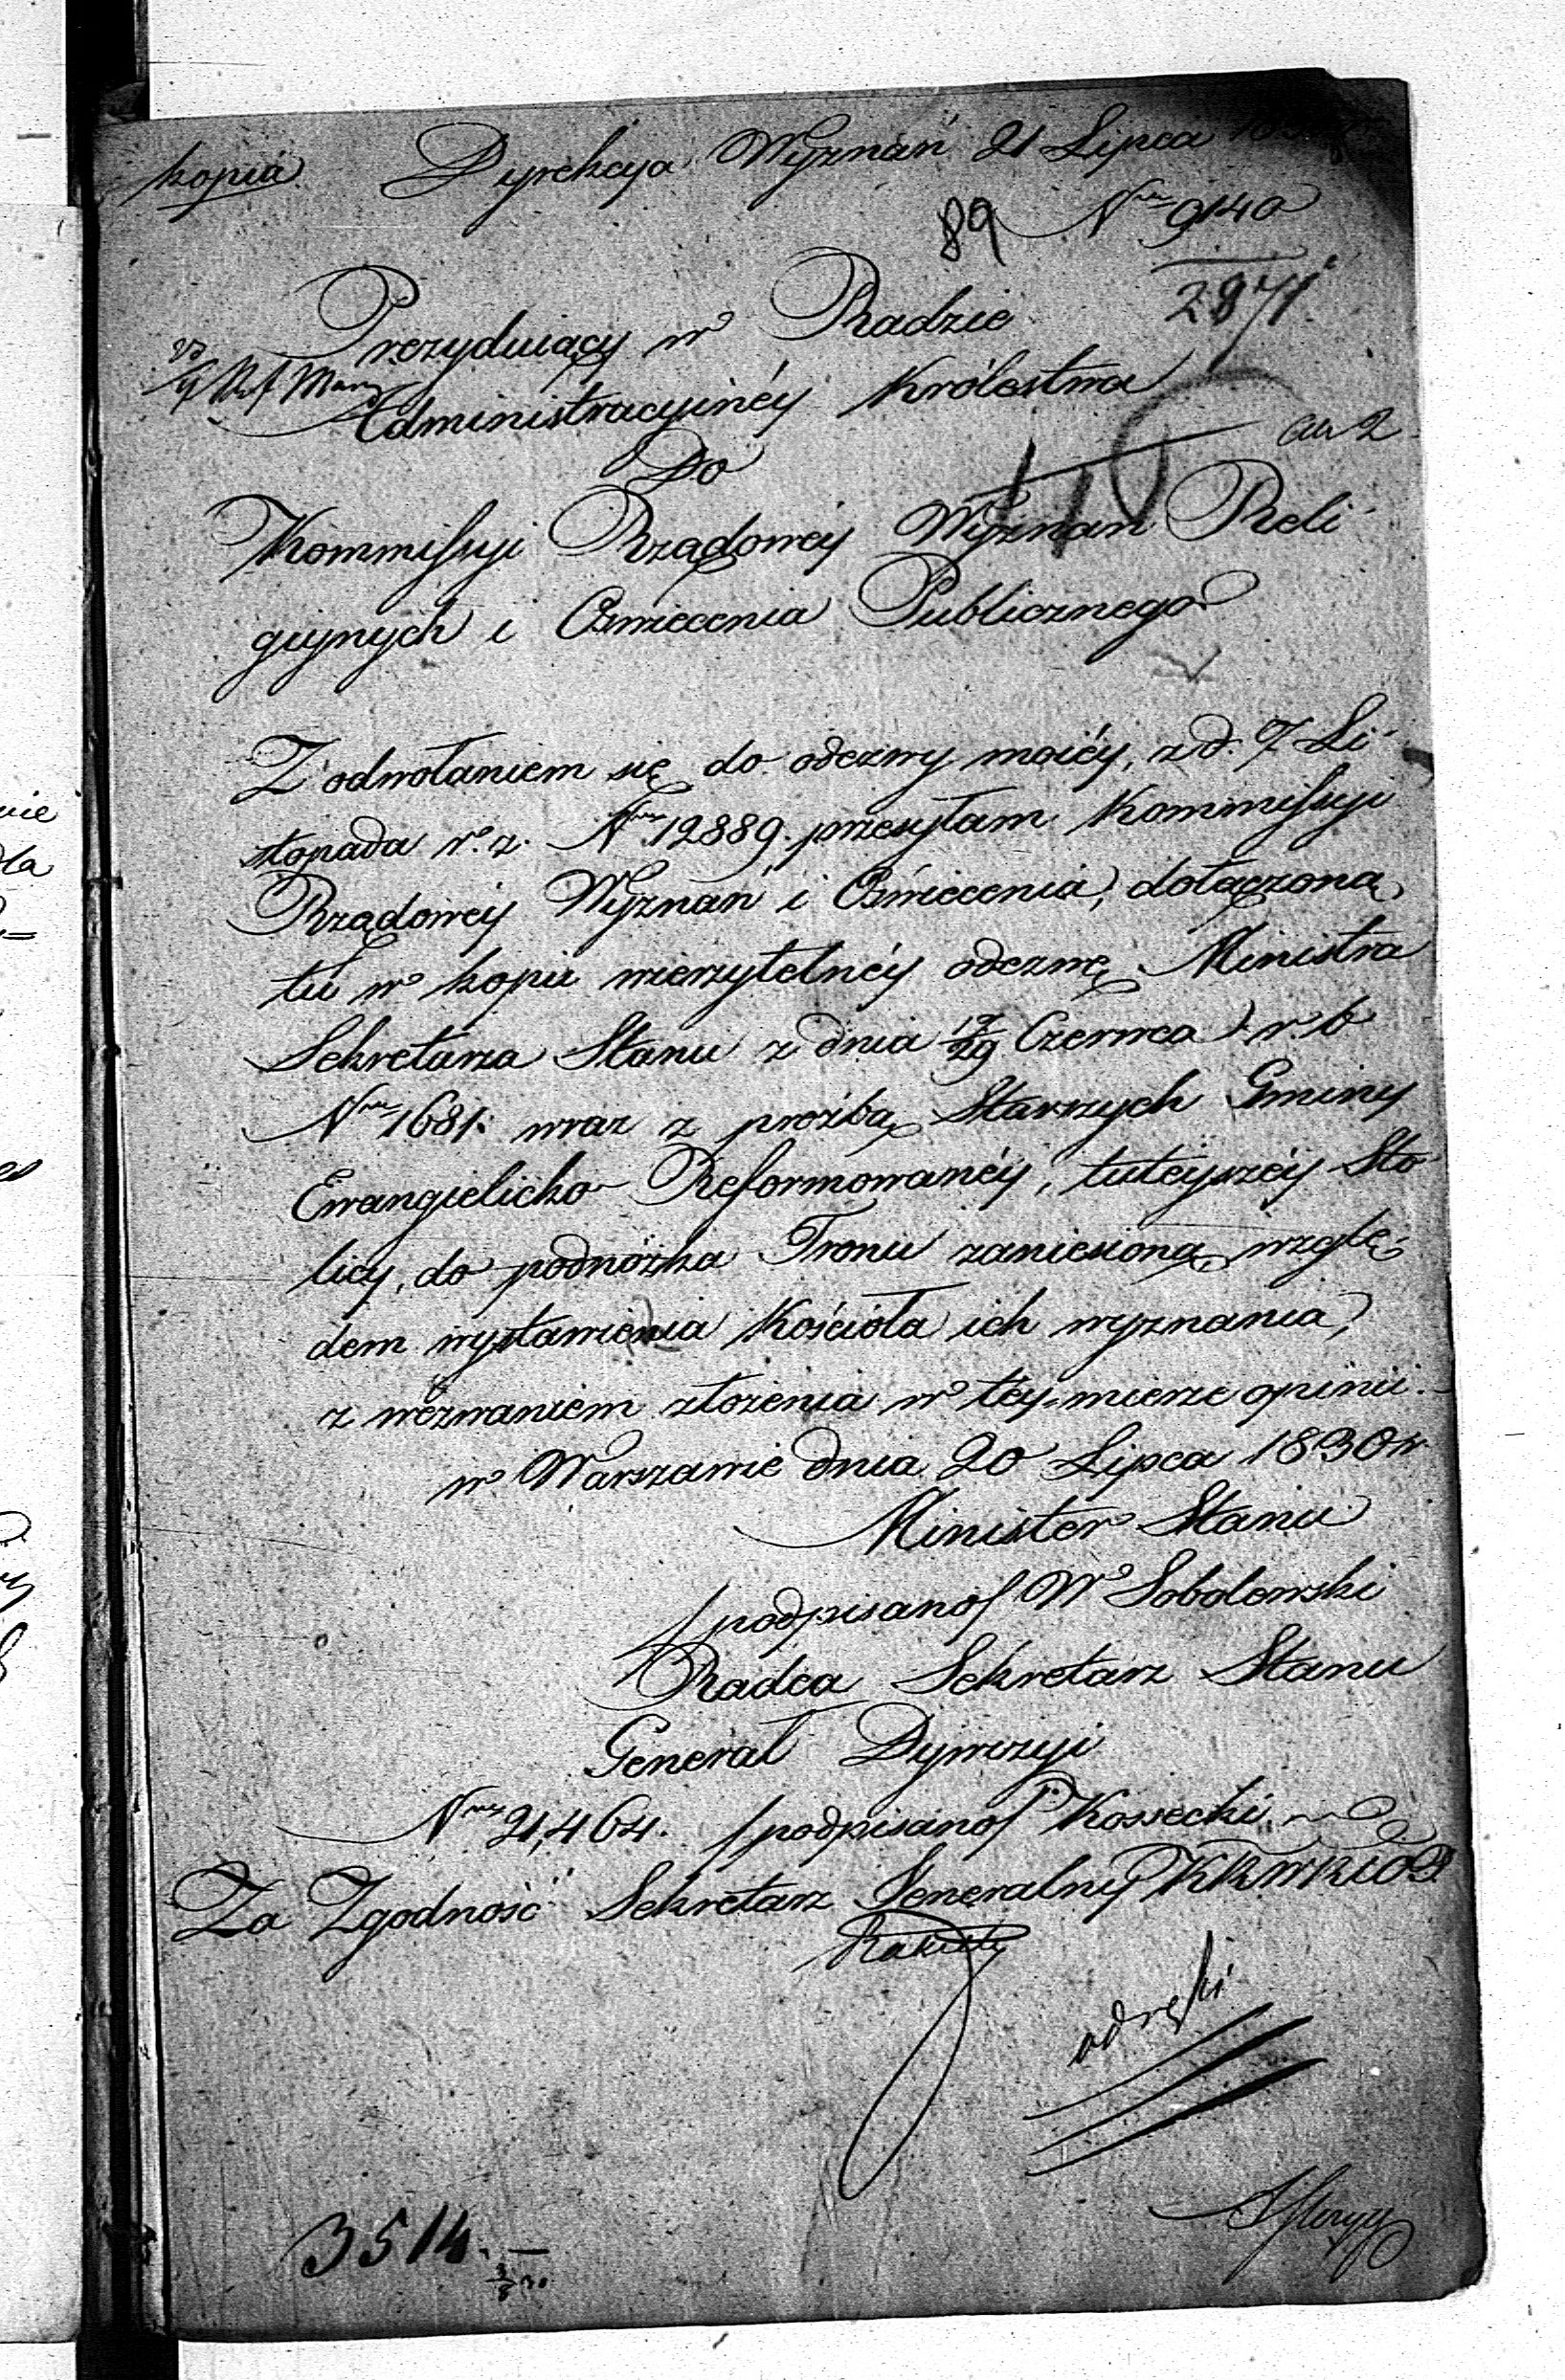 kopia. Dyrekcya Wyznań 21 Lipca
89 Nro 9140
2871
Prezyduiący w Radzie
Administracyinéy Królestwa
ad 2
Do
Kommissyi Rządowéy Wyznań Reli-
giynych i Oświecenia Publicznego
Z odwołaniem się do odezwy moiéy, z d. 7 Li-
stopada r. z. Nro 12889. przesyłam Kommissyi
Rządowéy Wyznań i Oświecenia, dołączoną
tu w kopii wierzytelnéy odezwę Ministra
Sekretarza Stanu z dnia 17/29 Czerwca r. b
Nro 1681. wraz z prożbą Starszych Gminy
Ewangielicko-Reformowanéy, tuteyszéy Sto-
licy, do podnóżka Tronu zaniesioną, wzglę-
dem wystawienia Kościoła ich wyznania,
z wezwaniem złożenia w tey mierze opinii.
w Warszawie dnia 20 Lipca 1830 r.
Minister Stanu
/podpisano/ W Sobolewski
Radca Sekretarz Stanu
Generał Dywizyi
Nro 21,464. /podpisano/ Kossecki
Za Zgodność Sekretarz Generalny
odręki
3514.